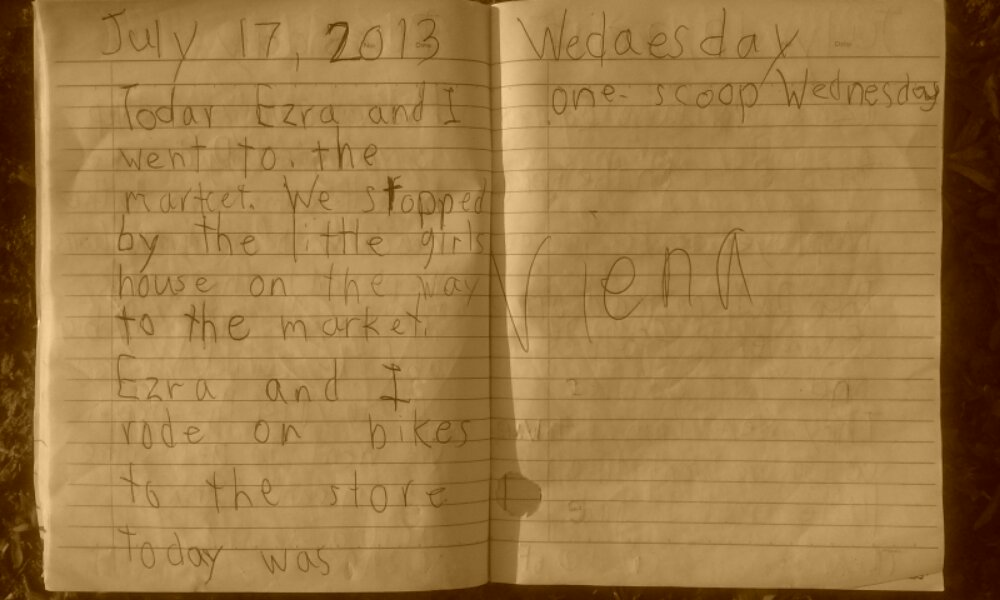 July 17, 2013
Today Ezra and I
went to. the
market. We stopped
by the little girls
house on the way
to the market.
Ezra and I
rode on bikes
to the store
Today was
Wedaesday
one-scoop Wednesday
Viena